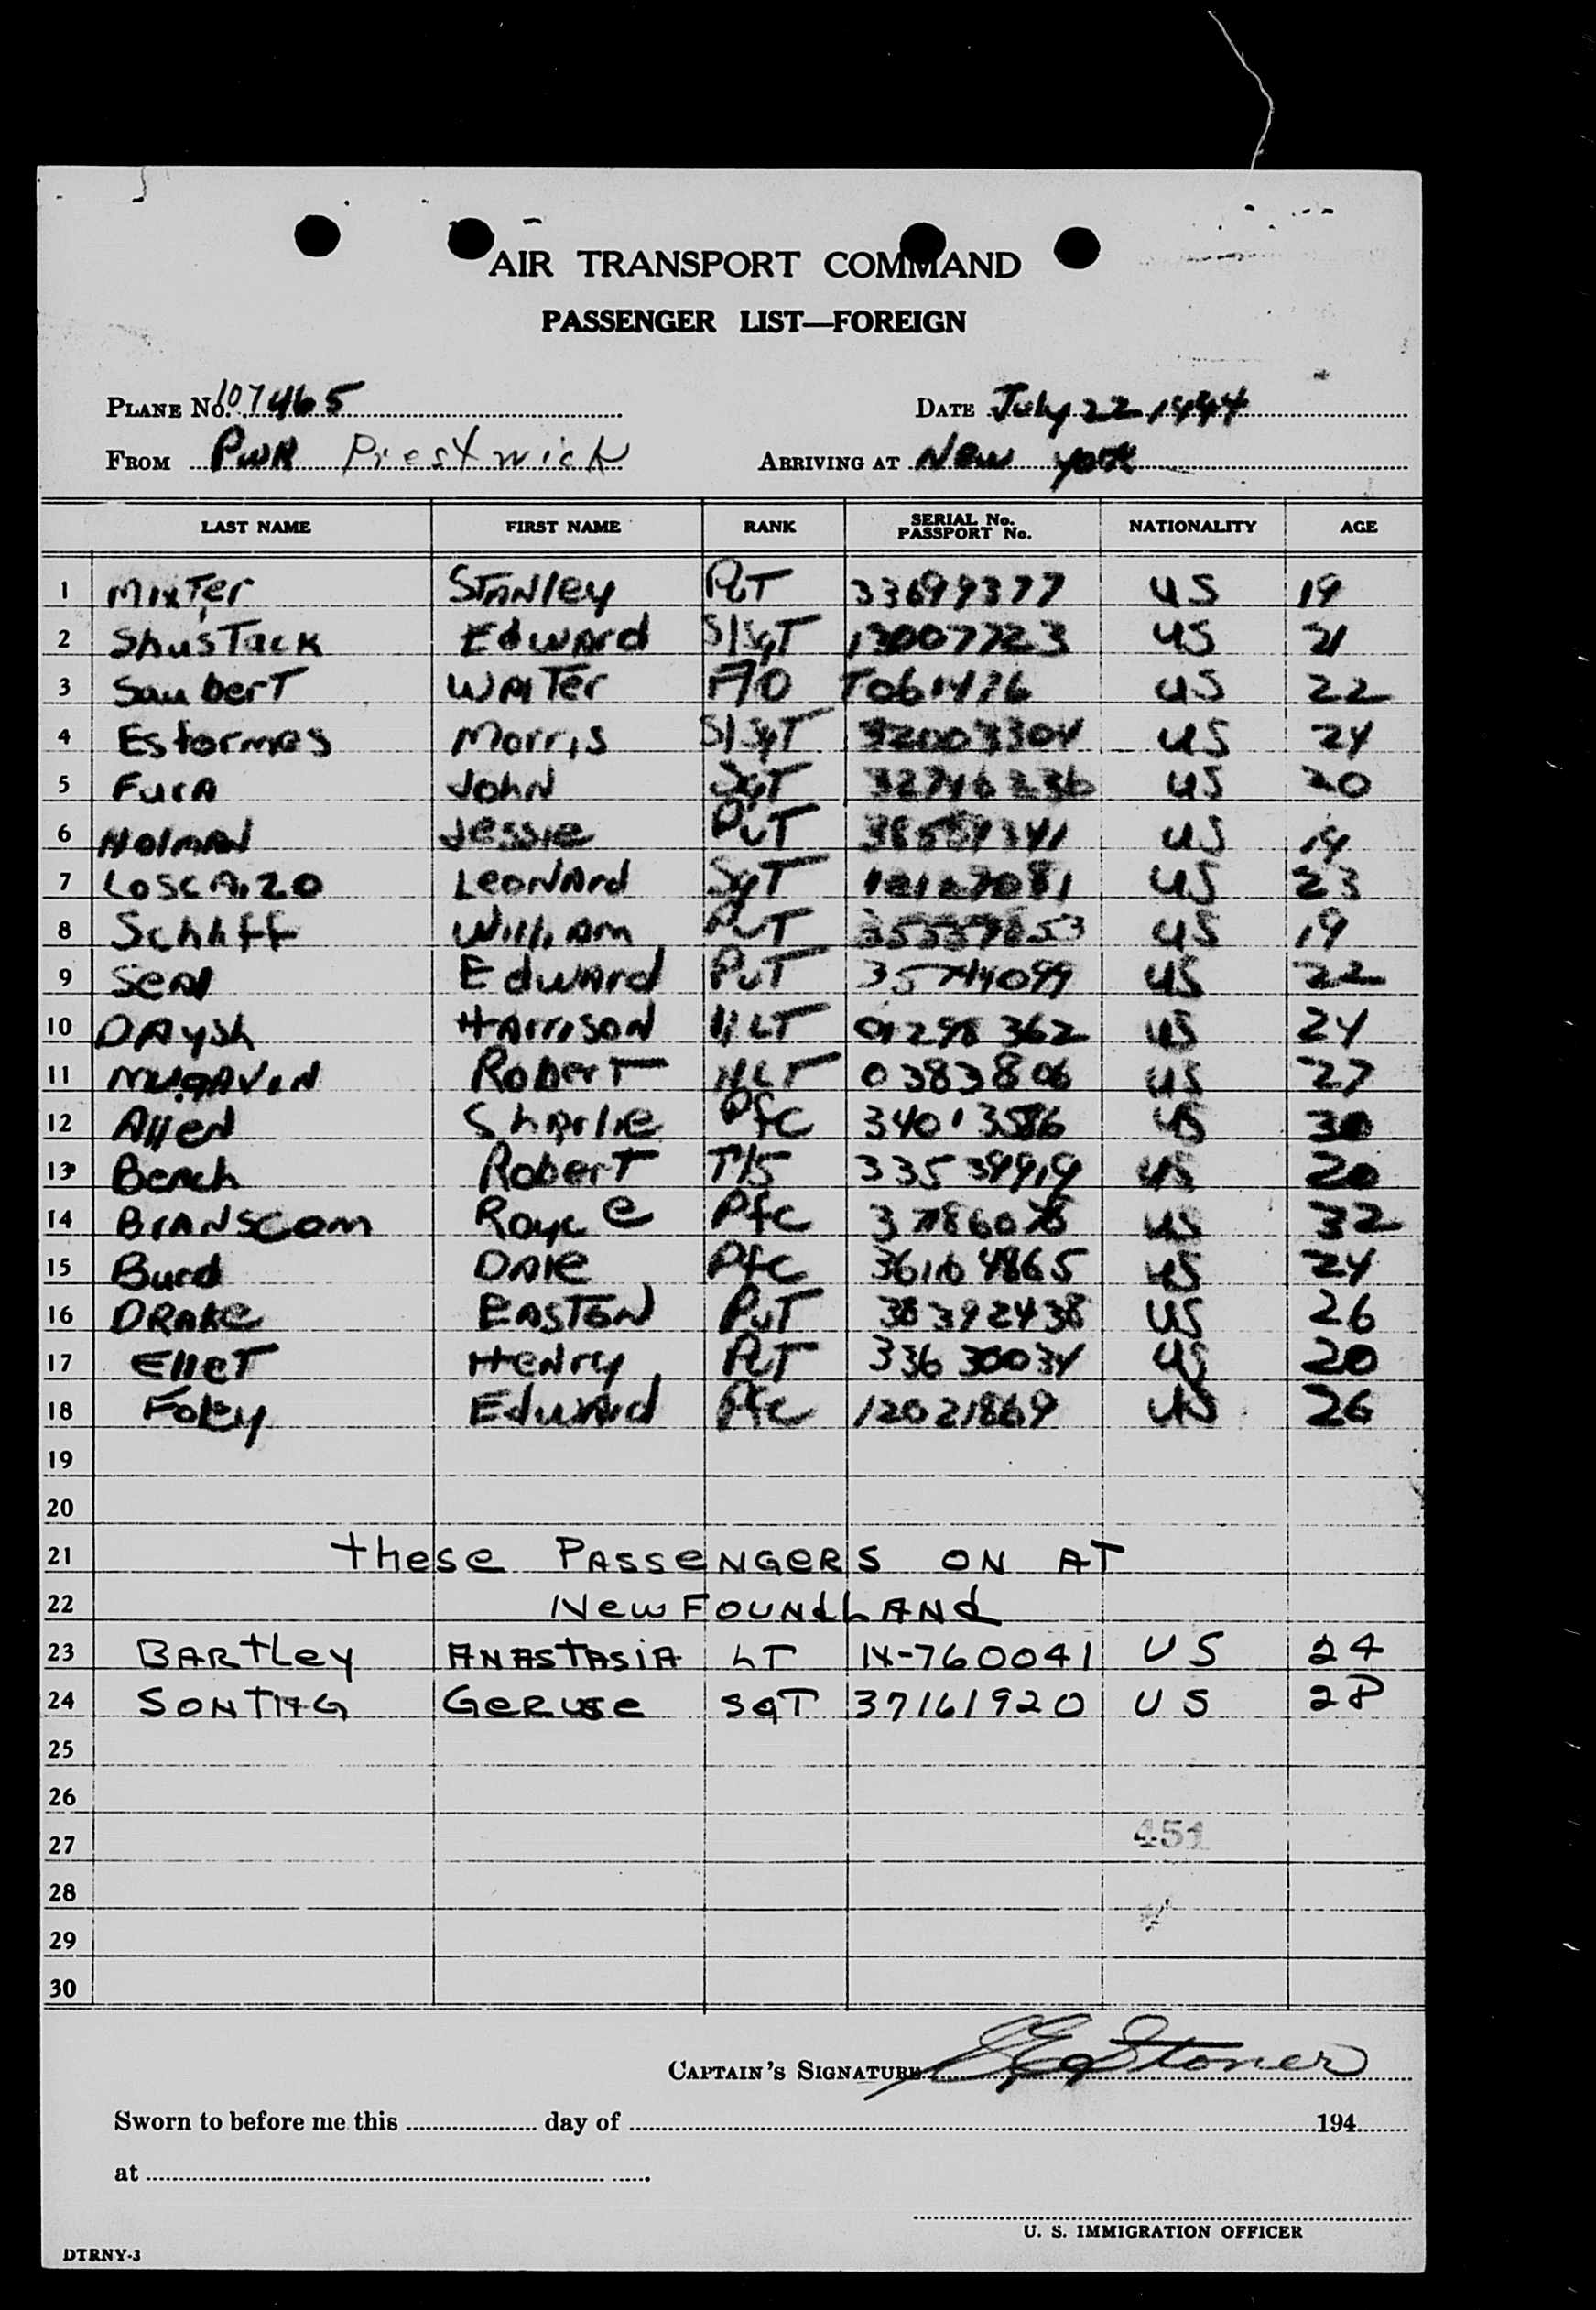 AIR TRANSPORT COMMAND
PASSENGER LIST—FOREIGN
PLANE No. 107465 DATE July 22, 1944
FROM PWK Prestwick ARRIVING AT New York
LAST NAME FIRST NAME RANK SERIAL No. PASSPORT No. NATIONALITY AGE
1 Mixter Stanley Pvt 33699377 US 19
2 Shustack Edward S/Sgt 13007723 US 21
3 Saubert Walter F/O US 22
4 Estormes Morris S/Sgt US 24
5 Fura John Sgt 32746236 US 20
6 Holman Jessie Pvt US 19
7 Leonard Sgt US 23
8 William Pvt US 19
9 Seal Edward Pvt 35744099 US 22
10 Daysh Harrison 1/LT US 24
11 Robert 0383806 US 27
12 Allen Sharlie Pfc 34013586 US 30
13 Beach Robert T/5 US 20
14 Branscom Royce Pfc US 32
15 Burd Dale Pfc US 24
16 DRAKE EASTON Pvt 38392438 US 26
17 Ellet Henry Pvt 33630034 US 20
18 Foley Edward Pfc 12021869 US 26
19
20
21 these PASSENGERS ON AT
22 NewFOUNdLANd
23 BARtLey ANASTASIA LT 760041 US 24
24 SONTAG SGT 37161920 US 28
25
26
27 451
28
29
30
CAPTAIN'S SIGNATURE Stoner
Sworn to before me this day of 194
at
U. S. IMMIGRATION OFFICER
DTRNY-3